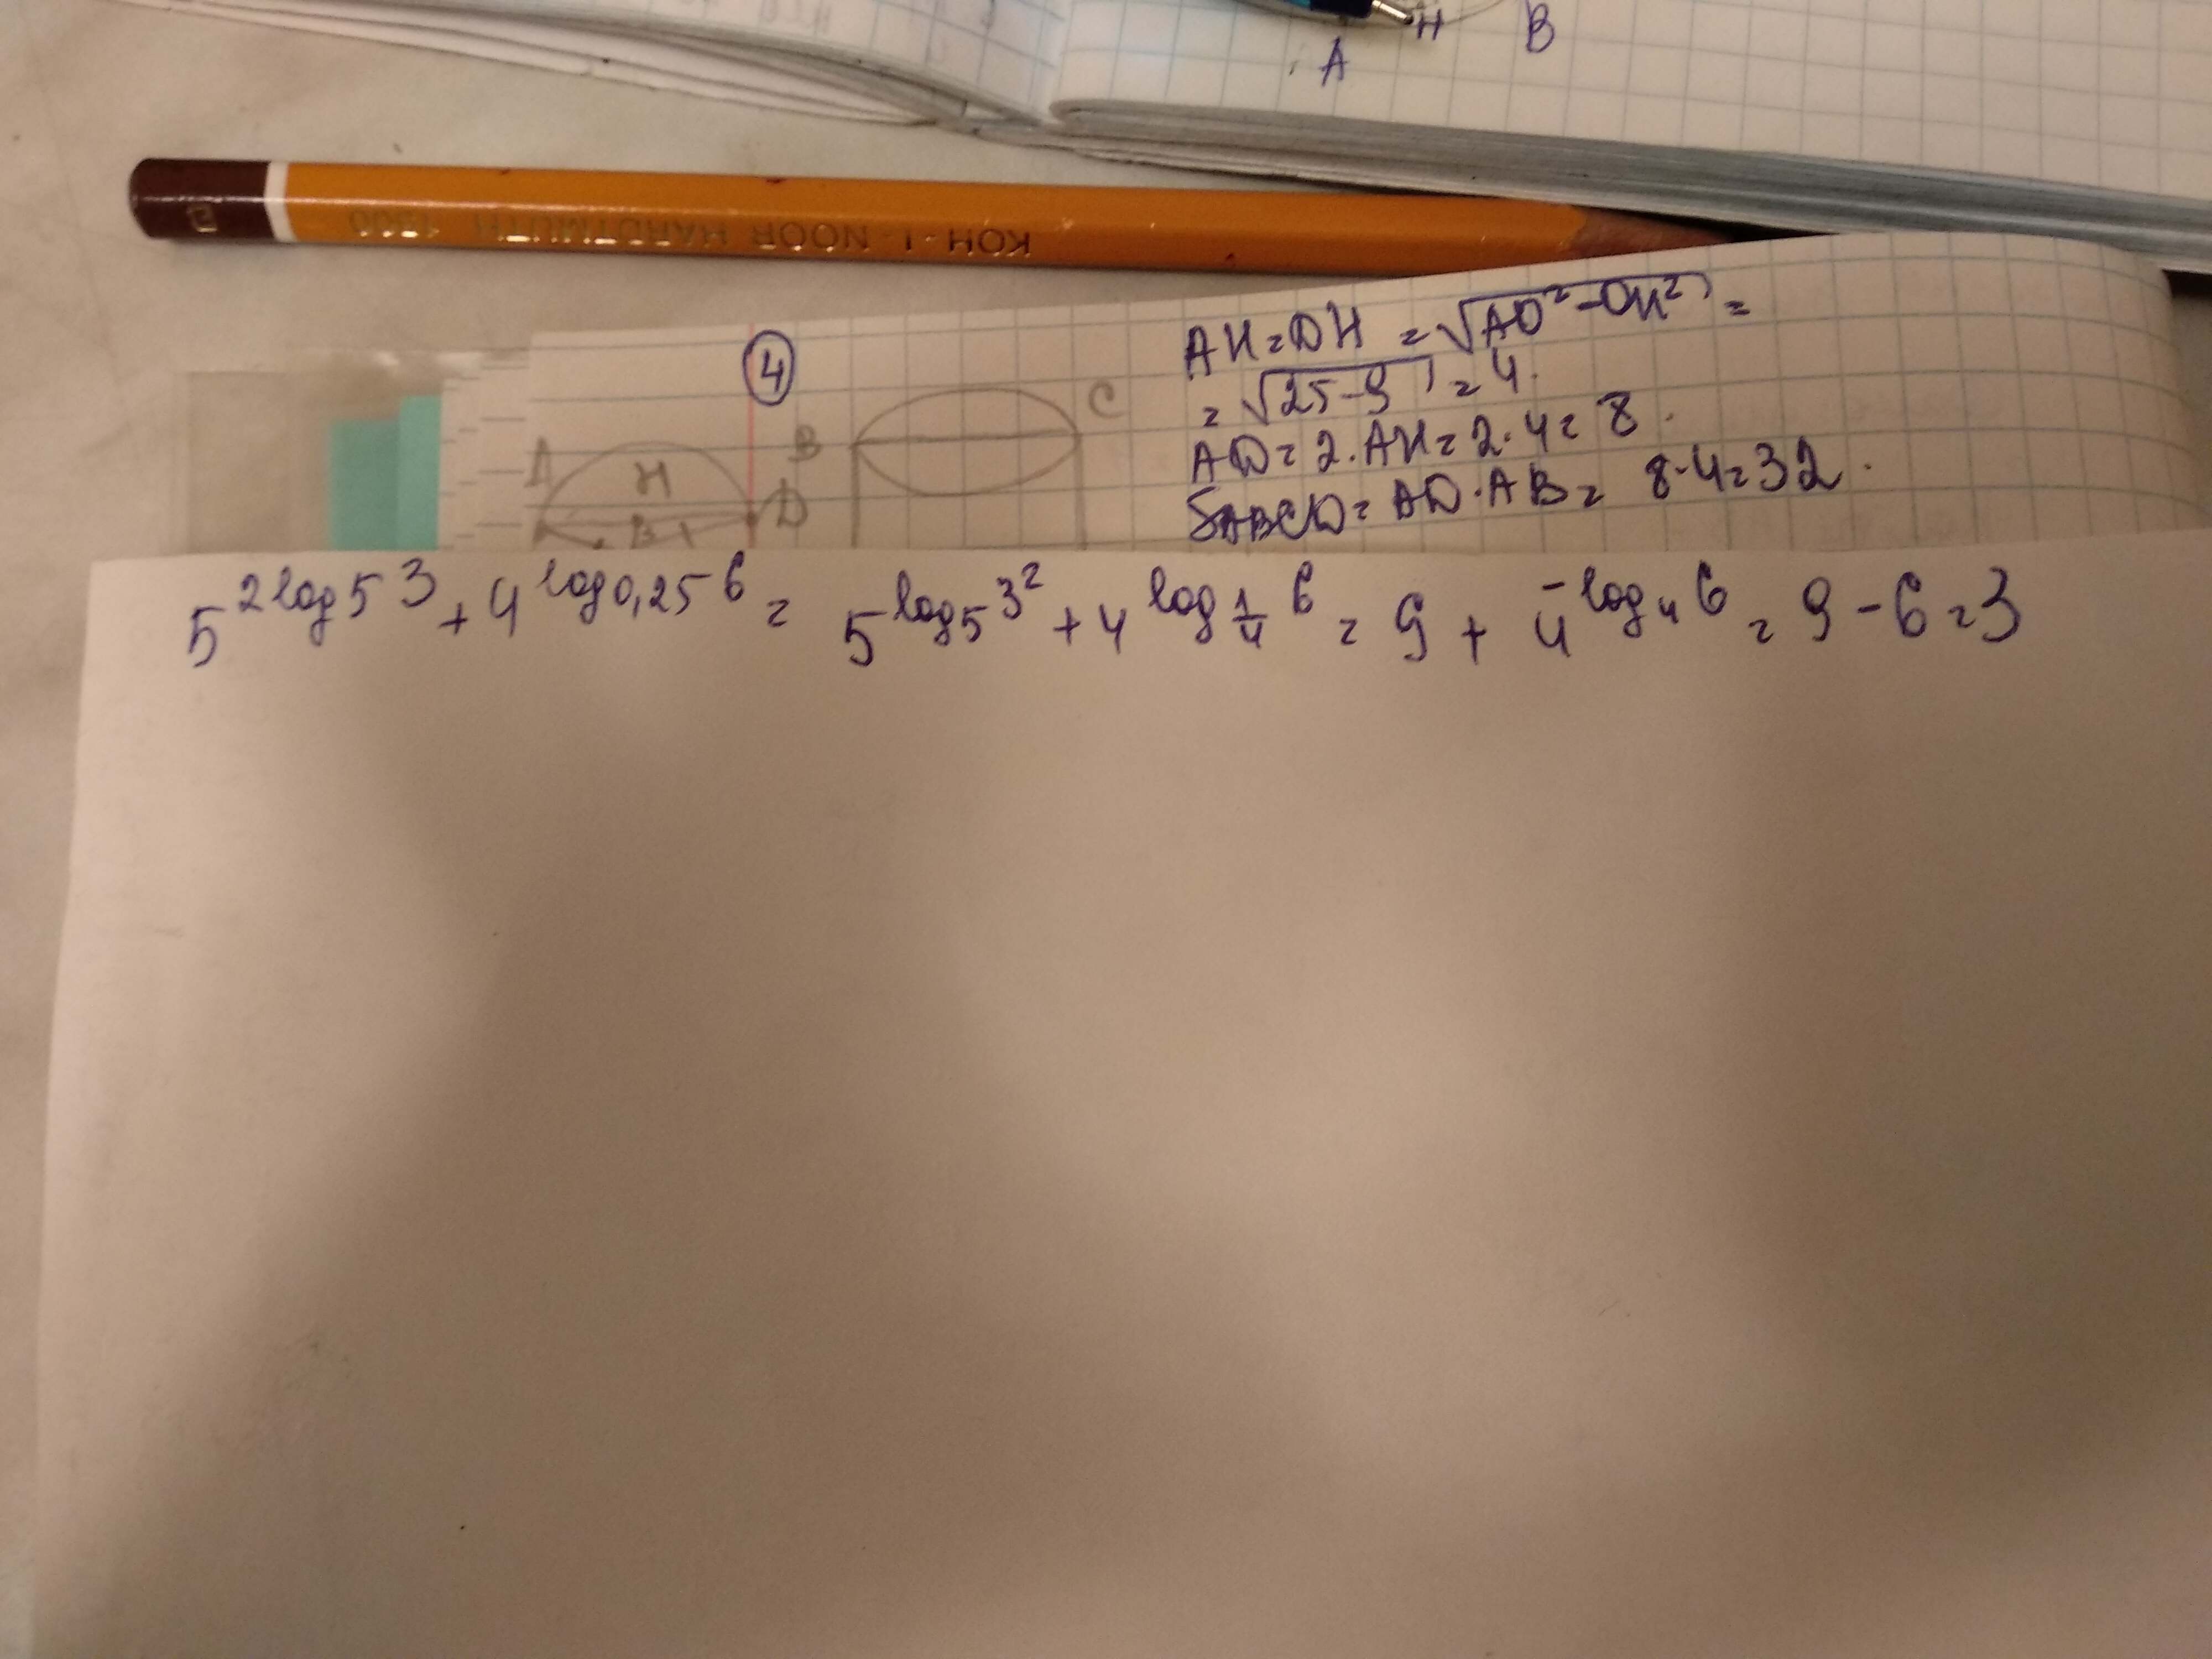 A H B
KOH-I-NOOR HARDTMUTH 1500
4
AH=DH = √AO²-OH² =
= √25-9 = 4.
AD = 2·AH = 2·4 = 8.
SABCD = AD·AB = 8·4=32.
A H D B C
B
5^2log5 3 + 4^log0,25 6 = 5^log5 3² + 4^log1/4 6 = 9 + 4^-log4 6 = 9-6=3